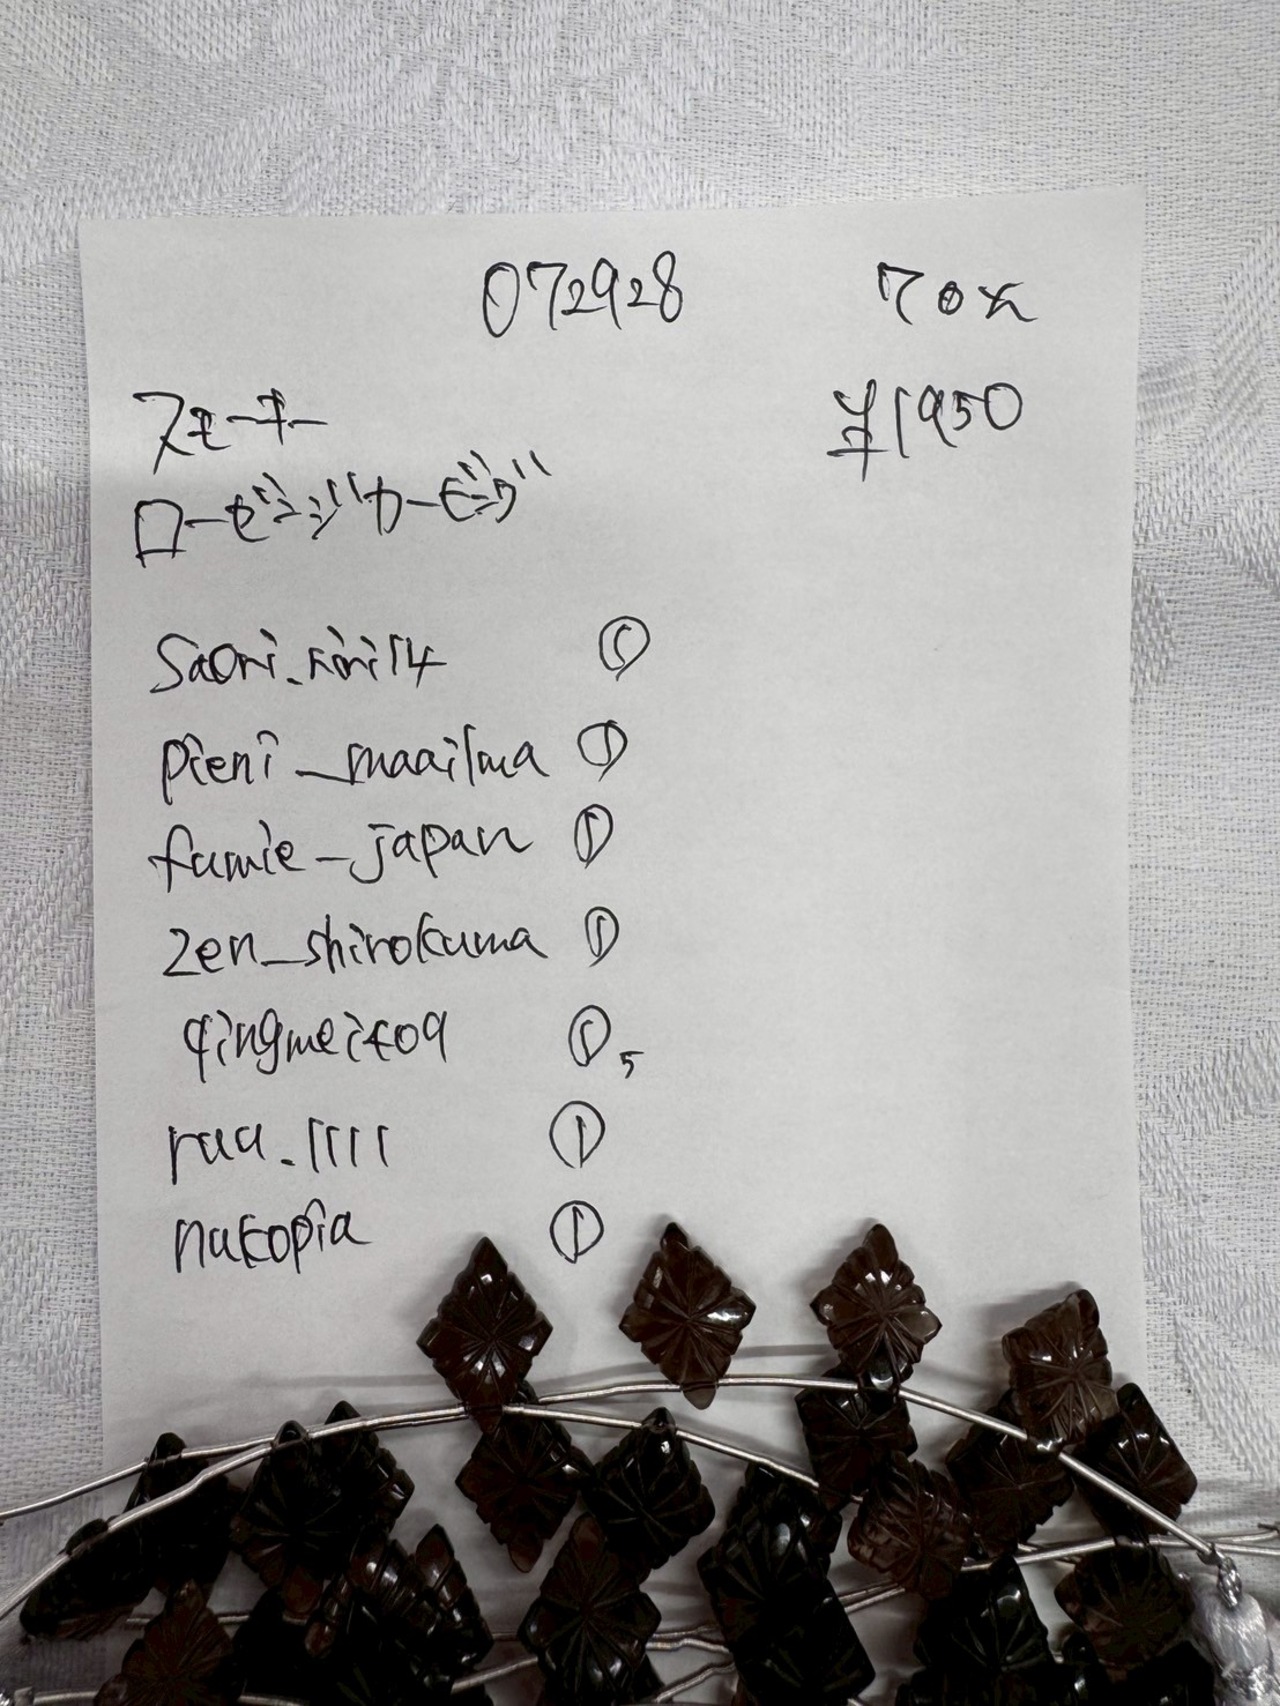 072928 70%
スモーキー
¥1950
ローゼンジカービング
saori.riri14 ①
pieni_maailma ①
fumie_japan ①
zen_shirokuma ①
qingmei409 ① 5
ruu.1111 ①
nukopia ①